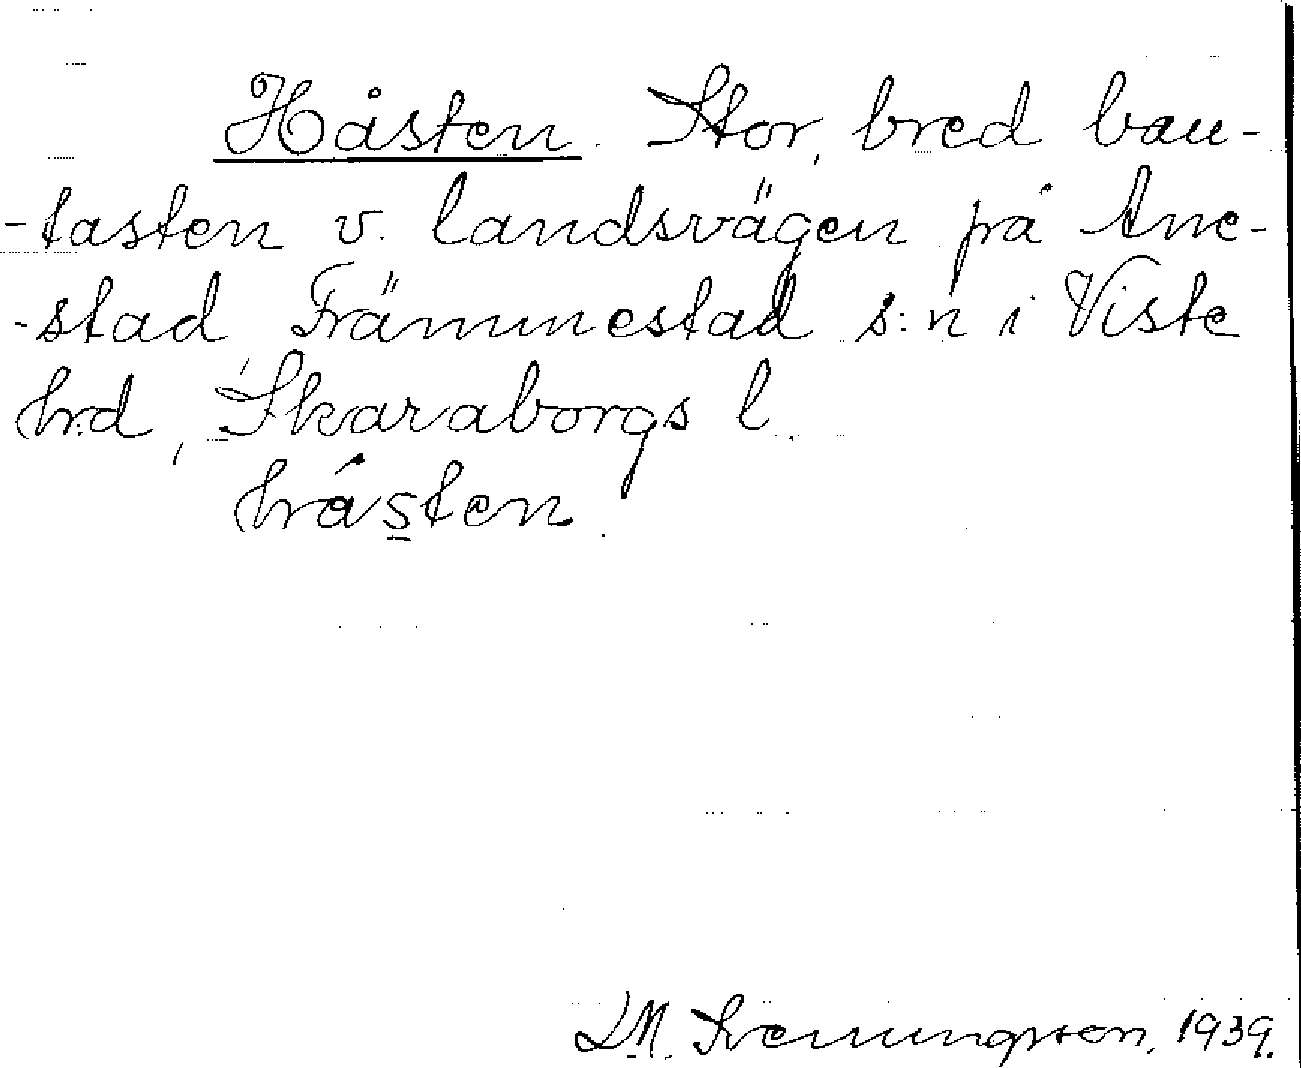 Håsten. Stor, bred bau-
-tasten v. landsvägen på Ane-
-stad, Främmestad s:n i Viste
hrd, Skaraborgs l.
hásten.
L.M. Svenungsson, 1939.